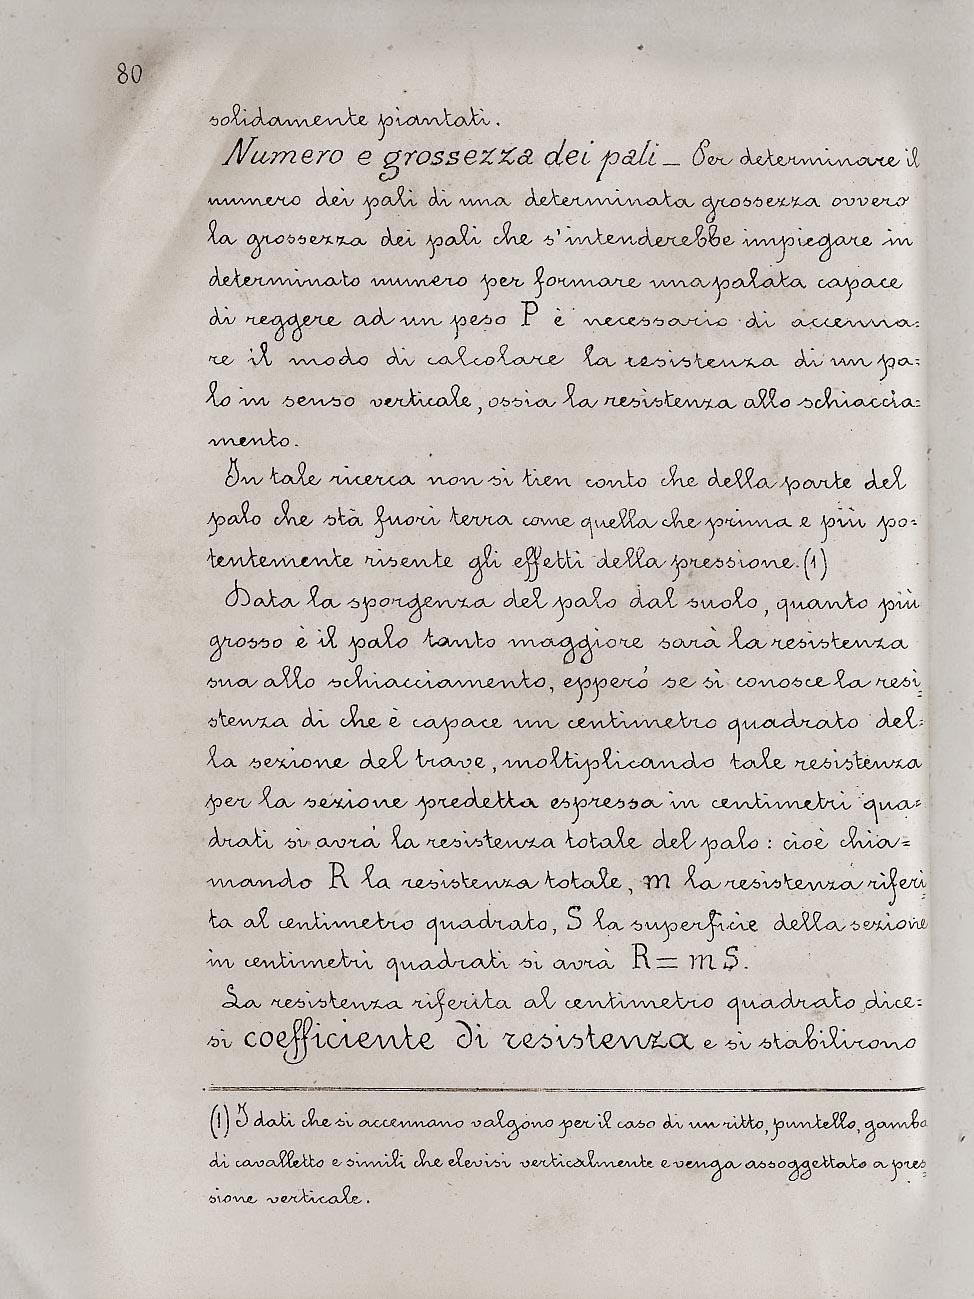 80
solidamente piantati.
Numero e grossezza dei pali _ Per determinare il
numero dei pali di una determinata grossezza ovvero
la grossezza dei pali che s'intenderebbe impiegare in
determinato numero per formare una palata capace
di reggere ad un peso P è necessario di accenna=
re il modo di calcolare la resistenza di un pa=
lo in senso verticale, ossia la resistenza allo schiaccia=
mento.
In tale ricerca non si tien conto che della parte del
palo che stà fuori terra come quella che prima e più po=
tentemente risente gli effetti della pressione.(1)
Data la sporgenza del palo dal suolo, quanto più
grosso è il palo tanto maggiore sarà la resistenza
sua allo schiacciamento, epperó se si conosce la resi=
stenza di che è capace un centimetro quadrato del=
la sezione del trave, moltiplicando tale resistenza
per la sezione predetta espressa in centimetri qua=
drati si avrá la resistenza totale del palo: cioè chia=
mando R la resistenza totale, m la resistenza riferi=
ta al centimetro quadrato, S la superficie della sezione
in centimetri quadrati si avrà R = m S.
La resistenza riferita al centimetro quadrato dice=
si coefficiente di resistenza e si stabilirono
(1) I dati che si accennano valgono per il caso di un ritto, puntello, gamba
di cavalletto e simili che elevisi verticalmente e venga assoggettato a pres=
sione verticale.